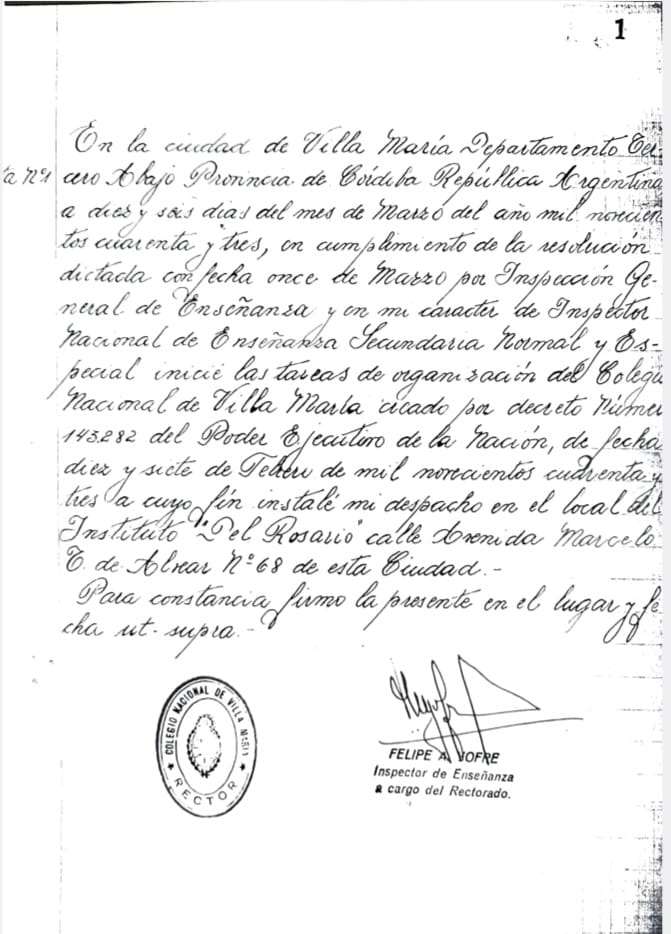 1
En la ciudad de Villa María Departamento Ter-
ta Nº1 cero Abajo Provincia de Córdiba República Argentina
a diez y seis dias del mes de Marzo del año mil novecien
tos cuarenta y tres, en cumplimiento de la resolución
dictada con fecha once de Marzo por Inspección Ge-
neral de Enseñanza y en mi caracter de Inspector
Nacional de Enseñanza Secundaria Normal y Es-
pecial inicié las tareas de organización del Colegio
Nacional de Villa María creado por decreto Númer
143.282 del Poder Ejecutivo de la Nación, de fecha
diez y siete de Febrero de mil novecientos cuarenta y
tres a cuyo fín instalé mi despacho en el local del
Instituto "Del Rosario" calle Avenida Marcelo
T. de Alvear Nº 68 de esta Ciudad.-
Para constancia firmo la presente en el lugar y fe
cha ut-supra.-
COLEGIO NACIONAL DE VILLA MARIA
RECTOR
FELIPE A. JOFRE
Inspector de Enseñanza
a cargo del Rectorado.